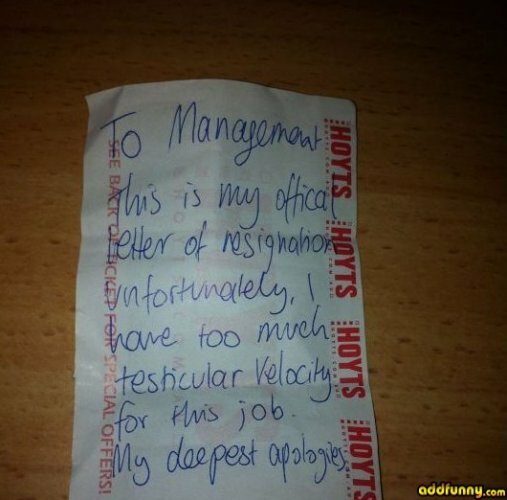 To Management
this is my offical
letter of resignation
unfortunately, I
have too much
testicular velocity
for this job.
My deepest apologies
SEE BACK OF TICKET FOR SPECIAL OFFERS!
HOYTS
HOYTS
HOYTS
HOYTS
addfunny.com